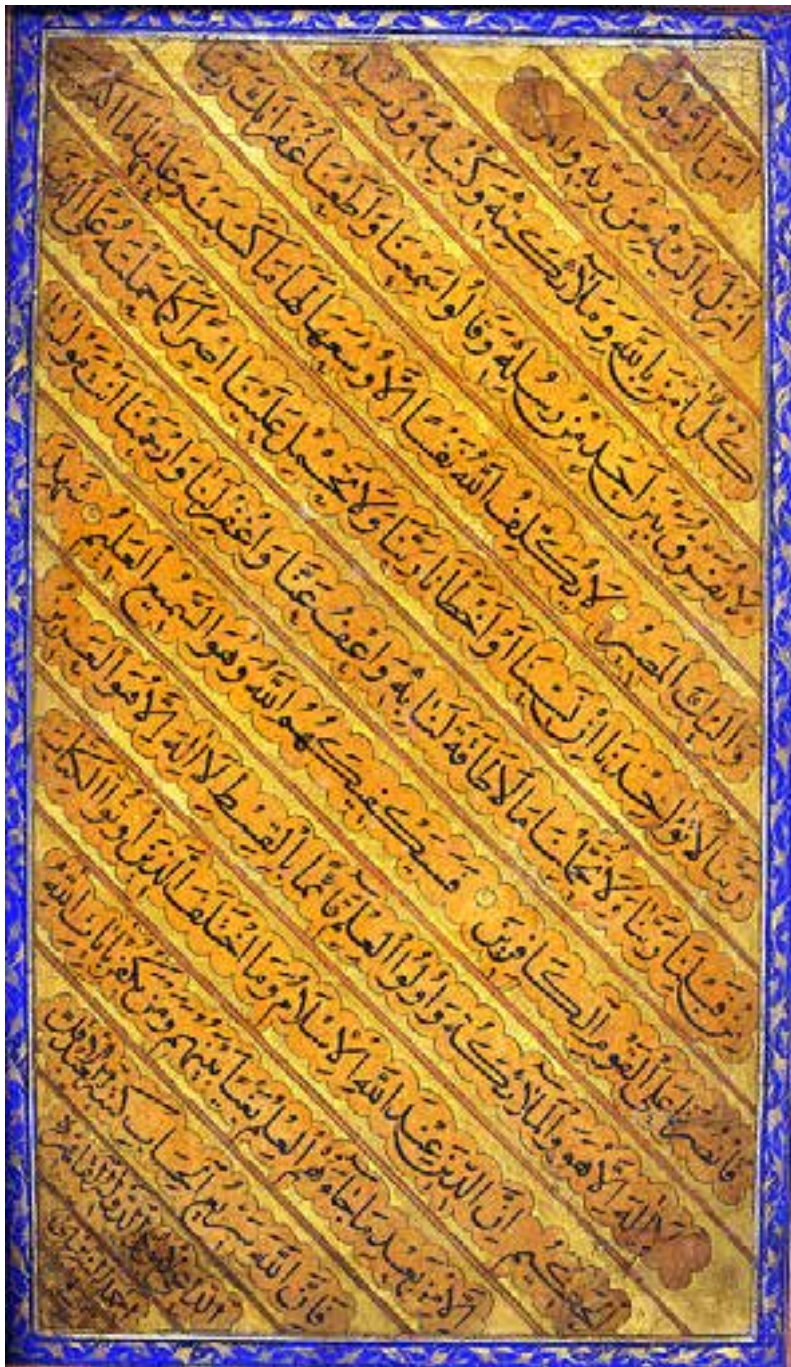 امن الرسول
انزل اليه من ربه
كل امن بالله وملآئكته وكتبه ورسله
لا نفرق بين احد من رسله وقالوا سمعنا واطعنا غفرانك ربنا
واليك المصير لا يكلف الله نفسا الا وسعها لها ما كسبت وعليها ما اكتسبت
ربنا لا تؤاخذنا ان نسينا او اخطأنا ربنا ولا تحمل علينا اصرا كما حملته على الذين
من قبلنا ربنا ولا تحملنا ما لا طاقة لنا به واعف عنا واغفر لنا وارحمنا انت مولانا
فانصرنا على القوم الكافرين فسيكفيكهم الله وهو السميع العليم شهد
لا اله الا هو والملآئكة واولوا العلم قآئما بالقسط لا اله الا هو العزيز
الحكيم ان الدين عند الله الاسلام وما اختلف الذين اوتوا الكتاب
الا من بعد ما جآءهم العلم بغيا بينهم ومن يكفر بايات الله
فان الله سريع الحساب كتبه العبد
احمد النيريزي